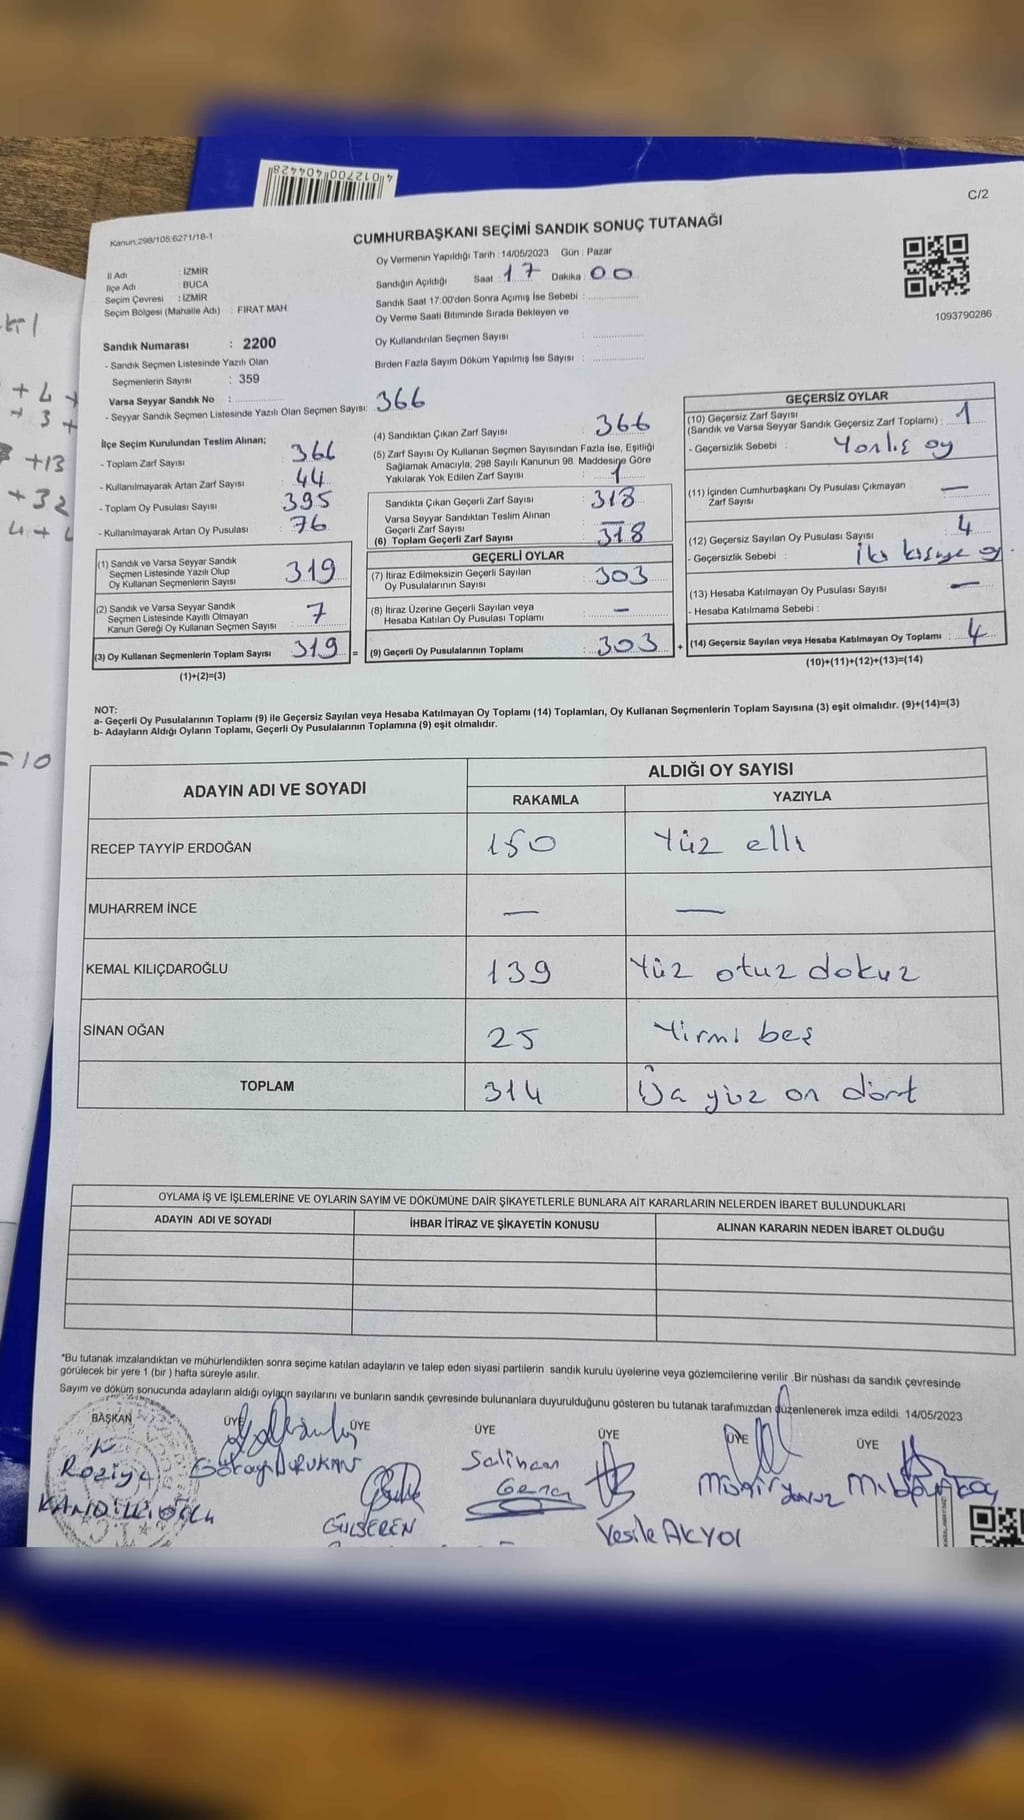 4012700404428
C/2
Kanun:298/105:6271/18-1
CUMHURBAŞKANI SEÇİMİ SANDIK SONUÇ TUTANAĞI
Oy Vermenin Yapıldığı Tarih : 14/05/2023 Gün : Pazar
İl Adı : İZMİR
İlçe Adı : BUCA
Seçim Çevresi : İZMİR
Seçim Bölgesi (Mahalle Adı) : FIRAT MAH.
Sandığın Açıldığı Saat : 17 Dakika : 00
Sandık Saat 17.00'den Sonra Açımış İse Sebebi :
Oy Verme Saati Bitiminde Sırada Bekleyen ve
Oy Kullandırılan Seçmen Sayısı :
Birden Fazla Sayım Döküm Yapılmış İse Sayısı :
1093790286
Sandık Numarası : 2200
- Sandık Seçmen Listesinde Yazılı Olan
Seçmenlerin Sayısı : 359
Varsa Seyyar Sandık No :
- Seyyar Sandık Seçmen Listesinde Yazılı Olan Seçmen Sayısı: 366
İlçe Seçim Kurulundan Teslim Alınan;
- Toplam Zarf Sayısı 366
- Kullanılmayarak Artan Zarf Sayısı 44
- Toplam Oy Pusulası Sayısı 395
- Kullanılmayarak Artan Oy Pusulası 76
(1) Sandık ve Varsa Seyyar Sandık
Seçmen Listesinde Yazılı Olup
Oy Kullanan Seçmenlerin Sayısı 319
(2) Sandık ve Varsa Seyyar Sandık
Seçmen Listesinde Kayıtlı Olmayan
Kanun Gereği Oy Kullanan Seçmen Sayısı 7
(3) Oy Kullanan Seçmenlerin Toplam Sayısı 319 =
(1)+(2)=(3)
(4) Sandıktan Çıkan Zarf Sayısı : 366
(5) Zarf Sayısı Oy Kullanan Seçmen Sayısından Fazla İse, Eşitliği
Sağlamak Amacıyla; 298 Sayılı Kanunun 98. Maddesine Göre
Yakılarak Yok Edilen Zarf Sayısı : 1
Sandıkta Çıkan Geçerli Zarf Sayısı : 318
Varsa Seyyar Sandıktan Teslim Alınan
Geçerli Zarf Sayısı
(6) Toplam Geçerli Zarf Sayısı : 318
GEÇERLİ OYLAR
(7) İtiraz Edilmeksizin Geçerli Sayılan
Oy Pusulalarının Sayısı : 303
(8) İtiraz Üzerine Geçerli Sayılan veya
Hesaba Katılan Oy Pusulası Toplamı : —
(9) Geçerli Oy Pusulalarının Toplamı : 303 +
GEÇERSİZ OYLAR
(10) Geçersiz Zarf Sayısı
(Sandık ve Varsa Seyyar Sandık Geçersiz Zarf Toplamı) : 1
- Geçersizlik Sebebi : Yanlış oy
(11) İçinden Cumhurbaşkanı Oy Pusulası Çıkmayan
Zarf Sayısı —
(12) Geçersiz Sayılan Oy Pusulası Sayısı 4
- Geçersizlik Sebebi : İki kişiye oy.
(13) Hesaba Katılmayan Oy Pusulası Sayısı —
- Hesaba Katılmama Sebebi :
(14) Geçersiz Sayılan veya Hesaba Katılmayan Oy Toplamı : 4
(10)+(11)+(12)+(13)=(14)
NOT:
a- Geçerli Oy Pusulalarının Toplamı (9) ile Geçersiz Sayılan veya Hesaba Katılmayan Oy Toplamı (14) Toplamları, Oy Kullanan Seçmenlerin Toplam Sayısına (3) eşit olmalıdır. (9)+(14)=(3)
b- Adayların Aldığı Oyların Toplamı, Geçerli Oy Pusulalarının Toplamına (9) eşit olmalıdır.
ADAYIN ADI VE SOYADI ALDIĞI OY SAYISI
RAKAMLA YAZIYLA
RECEP TAYYİP ERDOĞAN 150 Yüz elli
MUHARREM İNCE — —
KEMAL KILIÇDAROĞLU 139 Yüz otuz dokuz
SİNAN OĞAN 25 Yirmi beş
TOPLAM 314 yüz on dört
OYLAMA İŞ VE İŞLEMLERİNE VE OYLARIN SAYIM VE DÖKÜMÜNE DAİR ŞİKAYETLERLE BUNLARA AİT KARARLARIN NELERDEN İBARET BULUNDUKLARI
ADAYIN ADI VE SOYADI İHBAR İTİRAZ VE ŞİKAYETİN KONUSU ALINAN KARARIN NEDEN İBARET OLDUĞU
*Bu tutanak imzalandıktan ve mühürlendikten sonra seçime katılan adayların ve talep eden siyasi partilerin sandık kurulu üyelerine veya gözlemcilerine verilir .Bir nüshası da sandık çevresinde
görülecek bir yere 1 (bir ) hafta süreyle asılır.
Sayım ve döküm sonucunda adayların aldığı oyların sayılarını ve bunların sandık çevresinde bulunanlara duyurulduğunu gösteren bu tutanak tarafımızdan düzenlenerek imza edildi. 14/05/2023
BAŞKAN ÜYE ÜYE ÜYE ÜYE ÜYE ÜYE
Gökay DURUKAN
GÜLSEREN
Yesile AKYOL
+13
+32
=10